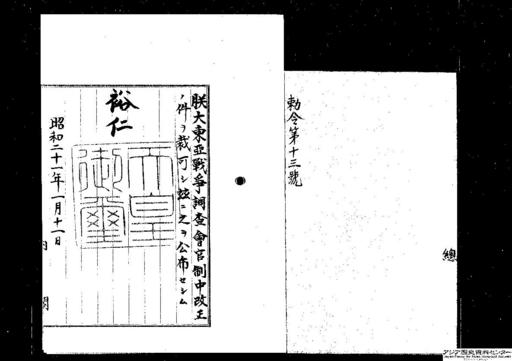 勅令第十三號
朕大東亞戰爭調査會官制中改正
ノ件ヲ裁可シ茲ニ之ヲ公布セシム
裕仁
天皇御璽
昭和二十一年一月十一日
内閣
總
アジア歴史資料センター